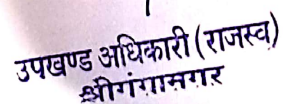 उपखण्ड अधिकारी (राजस्व)
श्रीगंगासगर